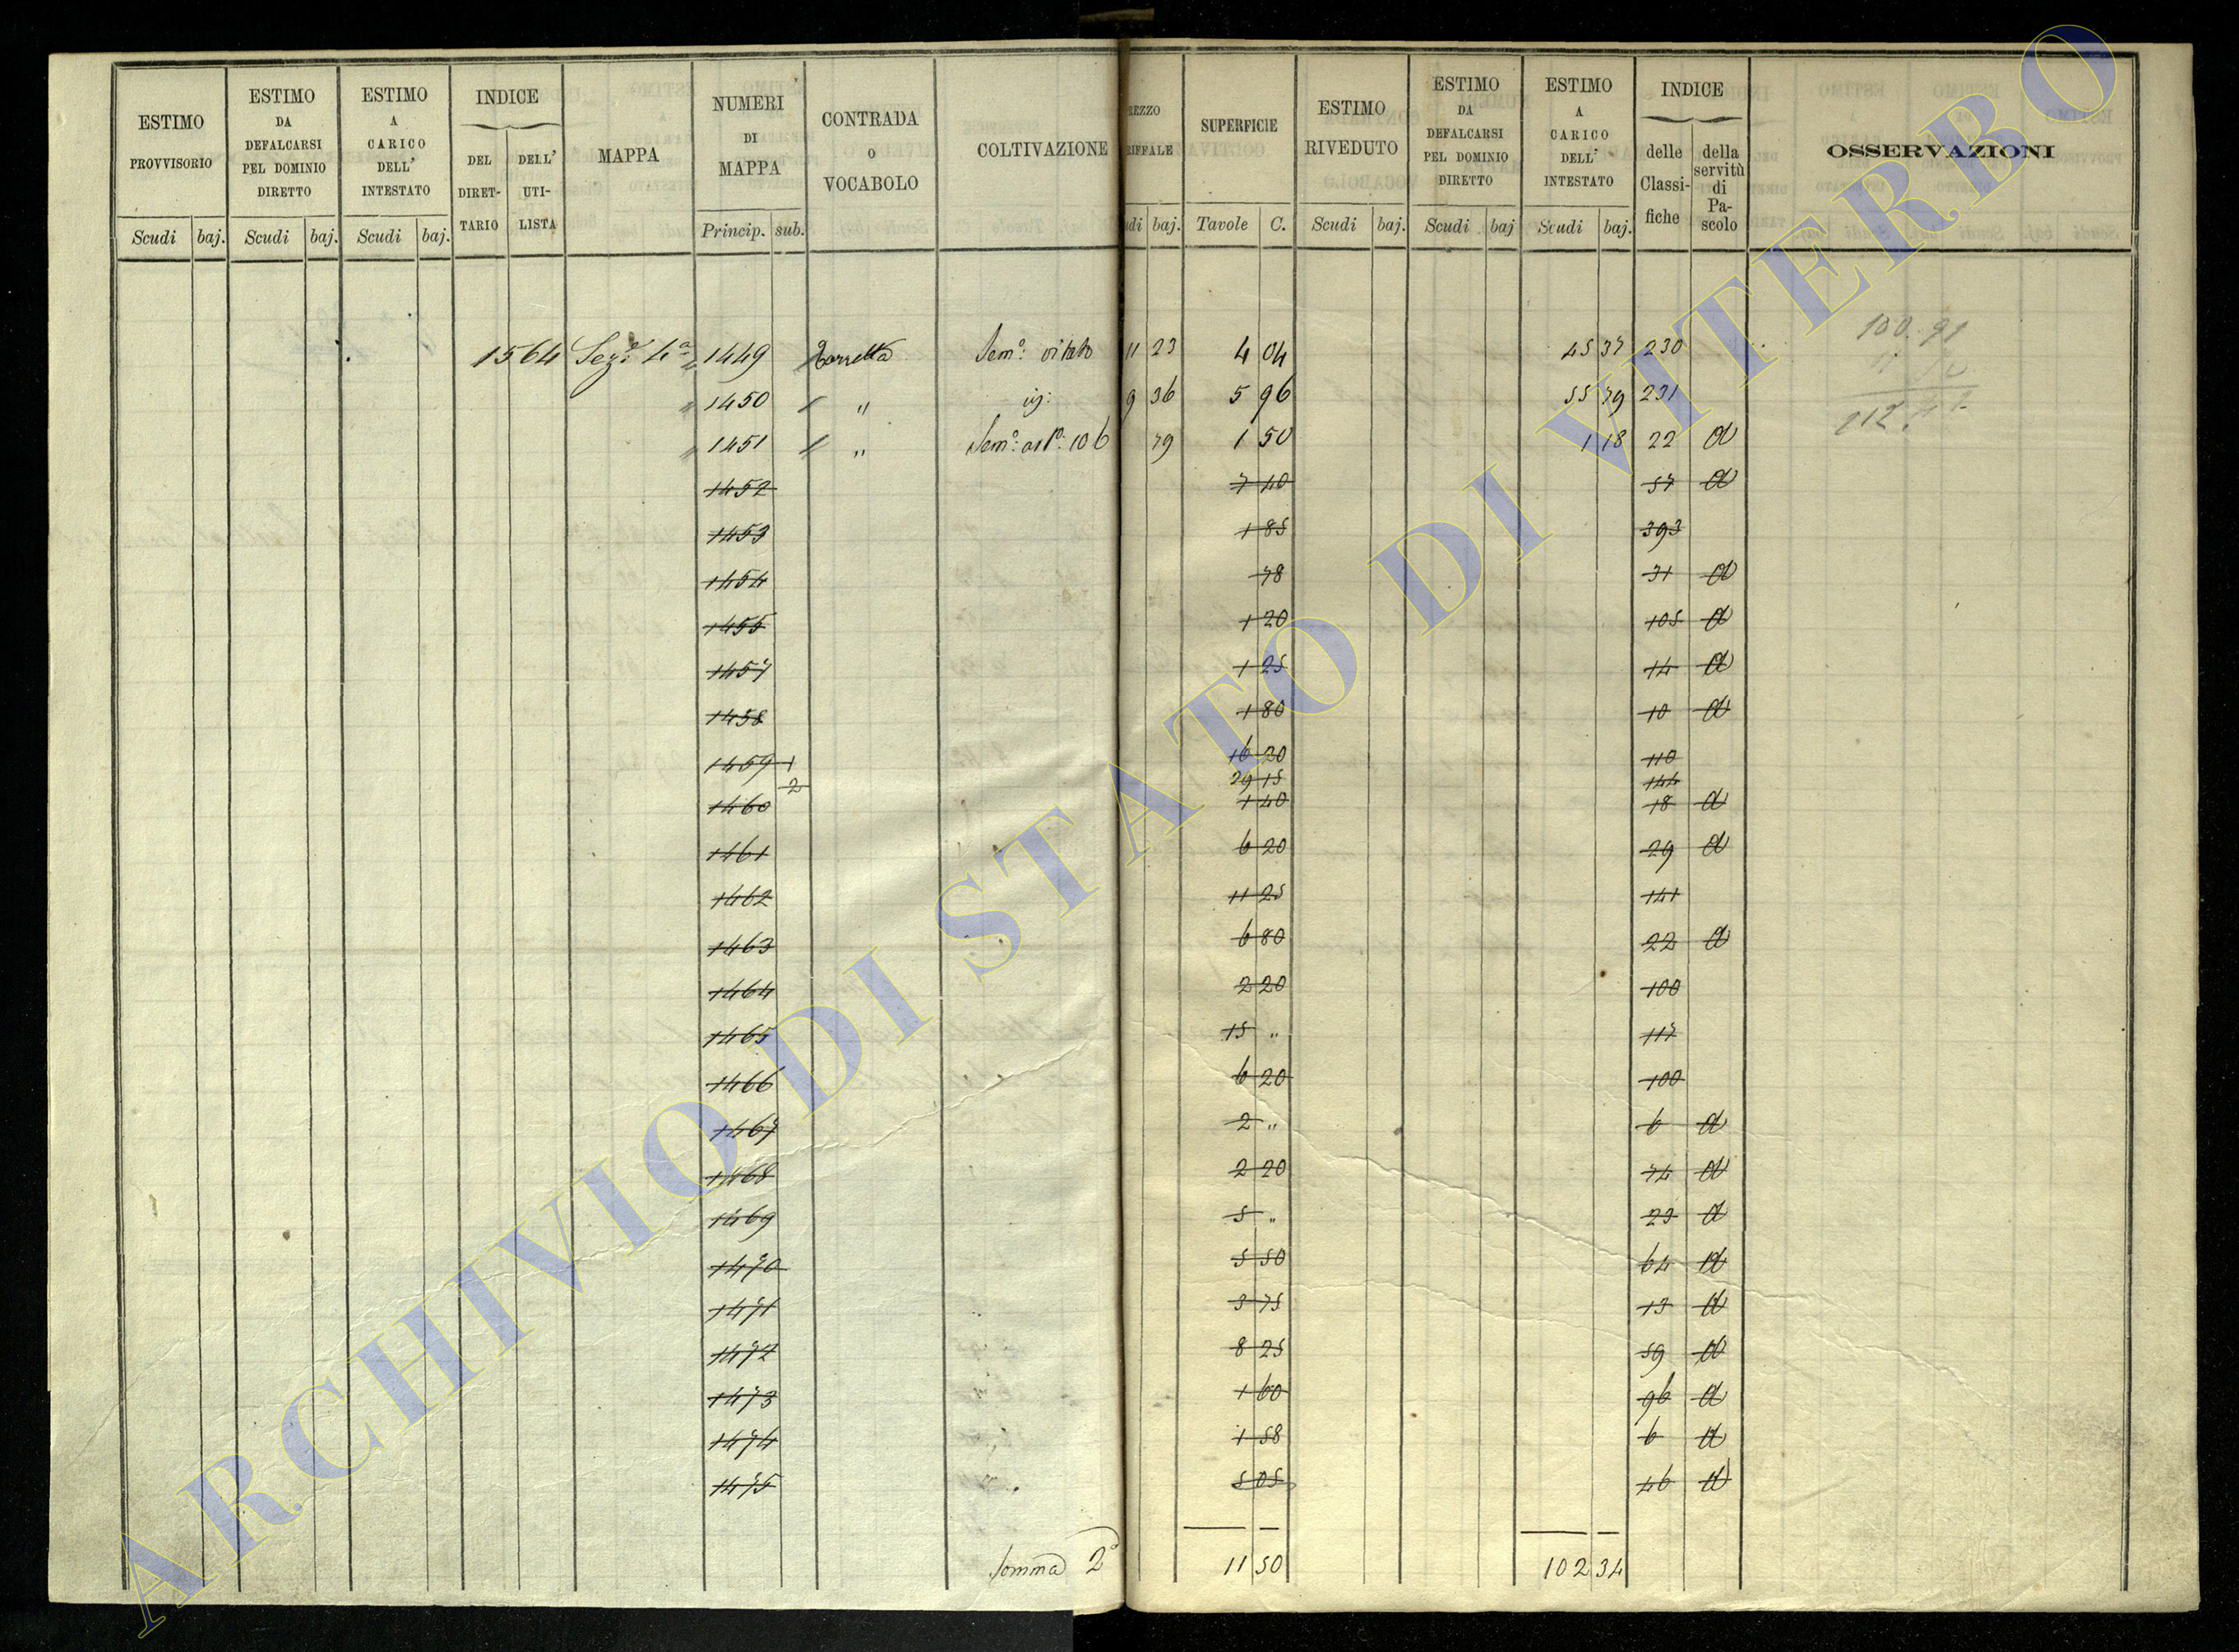 ESTIMO PROVVISORIO
Scudi baj.
ESTIMO DA DEFALCARSI PEL DOMINIO DIRETTO
Scudi baj.
ESTIMO A CARICO DELL' INTESTATO
Scudi baj.
INDICE
DEL DIRET-TARIO
DELL' UTI-LISTA
MAPPA
NUMERI DI MAPPA
Princip. sub.
CONTRADA O VOCABOLO
COLTIVAZIONE
REZZO RIFFALE
udi baj.
SUPERFICIE
Tavole C.
ESTIMO RIVEDUTO
Scudi baj.
ESTIMO DA DEFALCARSI PEL DOMINIO DIRETTO
Scudi baj
ESTIMO A CARICO DELL' INTESTATO
Scudi baj.
INDICE
delle Classi-fiche
della servitù di Pa-scolo
OSSERVAZIONI
1564 Sez.e 4a 1449 Torretta Sem.o vitato 11 23 4 04 45 37 230 100.91
1450 " " 9 36 5 96 55 79 231
1451 " " Sem.o 79 1 50 1 18 22 a
1452 7 40 57 a
1453 1 85 393
1454 78 31 a
1455 1 20 105 a
1457 1 25 14 a
1458 1 80 10 a
1459 1 16 20 110
2 29 15 144
1460 1 40 18 a
1461 6 20 29 a
1462 11 25 141
1463 6 80 22 a
1464 2 20 100
1465 15 " 117
1466 6 20 100
1467 2 " 6 a
1468 2 20 74 a
1469 5 " 23 a
1470 5 50 64 a
1471 3 75 13 a
1472 8 25 59 a
1473 1 60 96 a
1474 1 58 6 a
1475 5 05 46 a
Somma 2a 11 50 102 34
ARCHIVIO DI STATO DI VITERBO